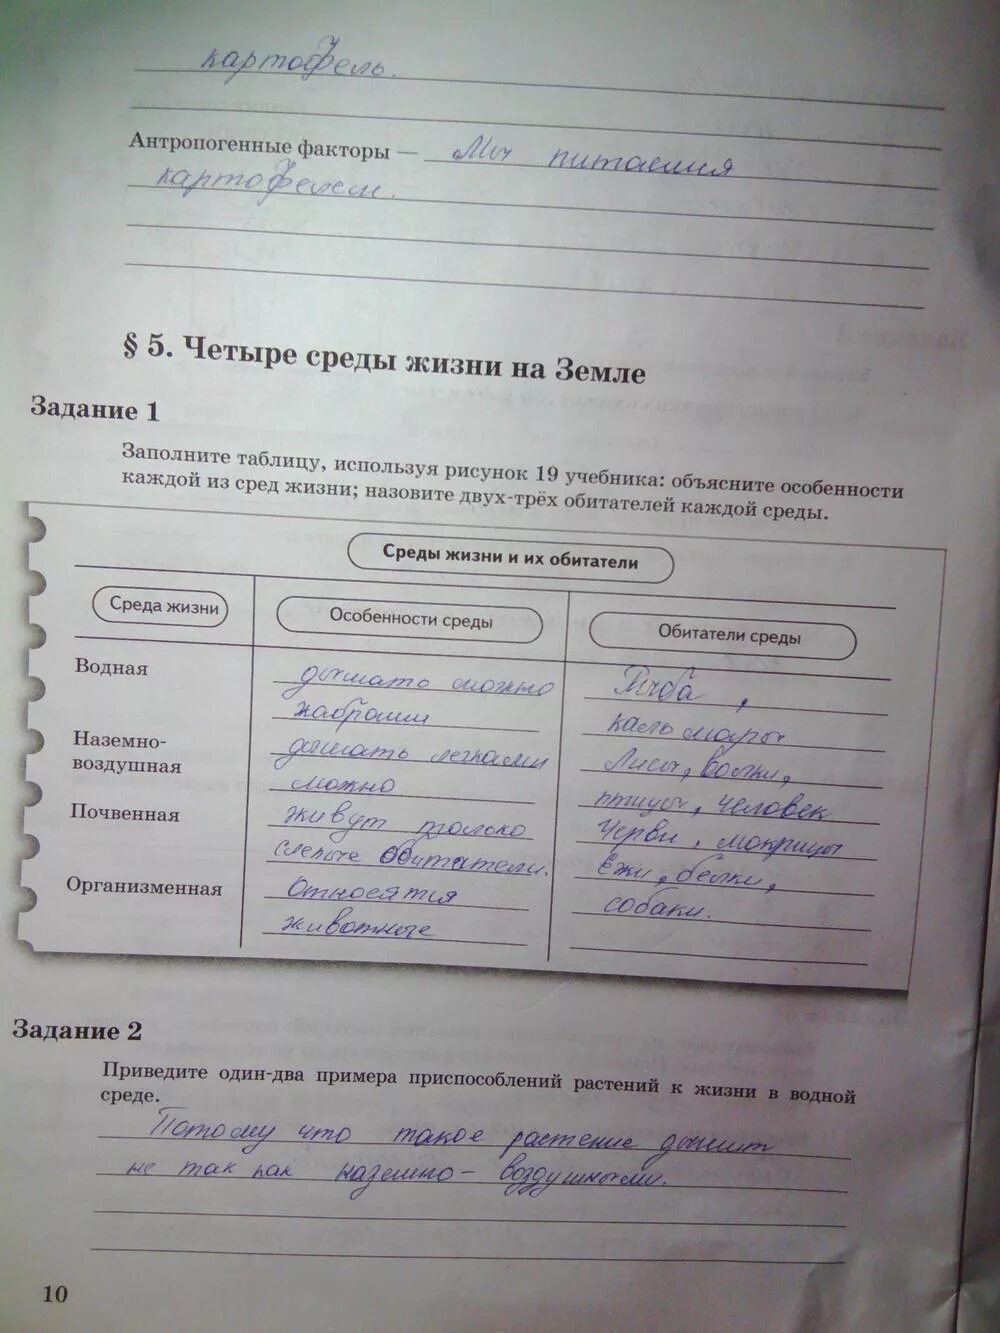 картофель.
Антропогенные факторы — Мы питаемся
картофелем.
§ 5. Четыре среды жизни на Земле
Задание 1
Заполните таблицу, используя рисунок 19 учебника: объясните особенности
каждой из сред жизни; назовите двух-трёх обитателей каждой среды.
Среды жизни и их обитатели
Среда жизни
Особенности среды
Обитатели среды
Водная
дышать можно
жабрами
Рыба,
кальмары
Наземно-
воздушная
дышать легками
можно
Лисы, волки,
птицы, человек
Почвенная
живут только
слепые обитатели.
Черви, мокрицы
Организменная
Относятся
животные
Ежи, белки,
собаки.
Задание 2
Приведите один-два примера приспособлений растений к жизни в водной
среде.
Потому что такое растение дышит
не так как наземно-воздушными.
10